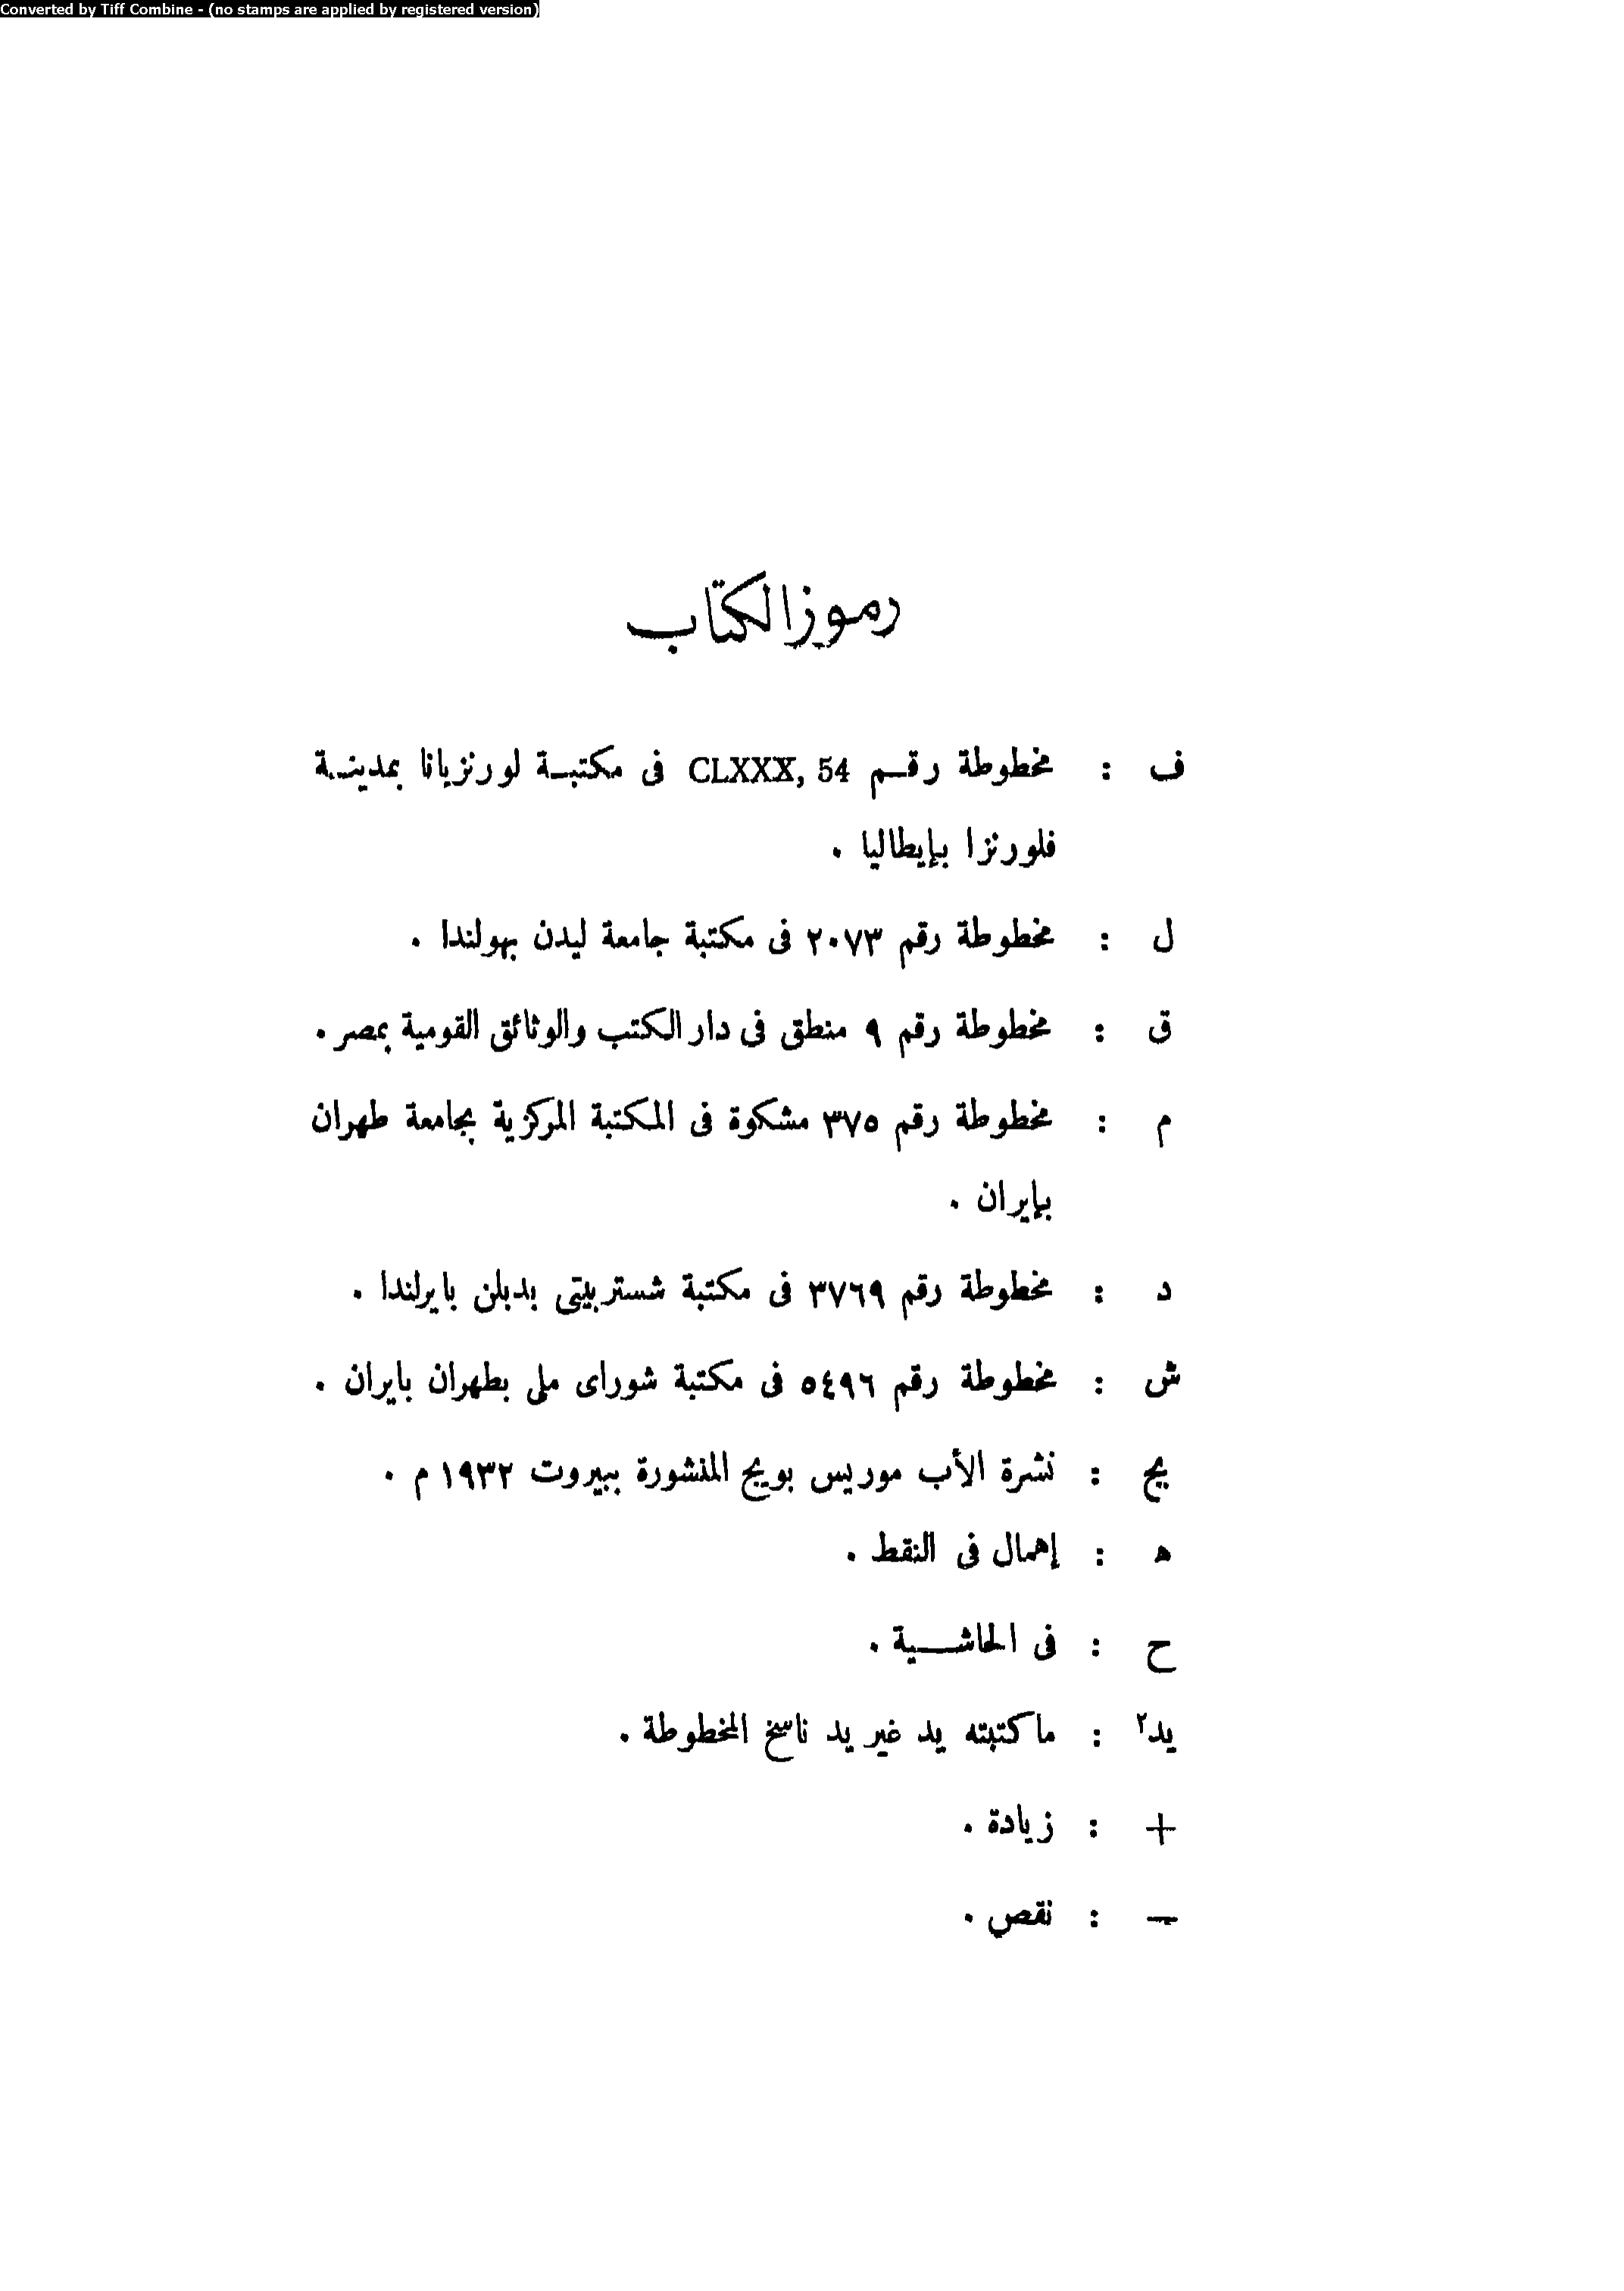 Converted by Tiff Combine - (no stamps are applied by registered version)
رموز الكتاب
ف : مخطوطة رقم CLXXX, 54 فى مكتبة لورنزيانا بمدينة
فلورنزا بإيطاليا .
ل : مخطوطة رقم ٢٠٧٣ فى مكتبة جامعة ليدن بهولندا .
ق : مخطوطة رقم ٩ منطق فى دار الكتب والوثائق القومية بمصر .
م : مخطوطة رقم ٣٧٥ مشكوة فى المكتبة المركزية بجامعة طهران
بإيران .
د : مخطوطة رقم ٣٧٦٩ فى مكتبة شستربيتى بدبلن بايرلندا .
ش : مخطوطة رقم ٥٤٩٦ فى مكتبة شوراى ملى بطهران بايران .
يج : نشرة الأب موريس بويج المنشورة ببيروت ١٩٣٢ م .
ه : إهمال فى النقط .
ح : فى الحاشية .
يد٢ : ما كتبته يد غير يد ناسخ المخطوطة .
+ : زيادة .
— : نقص .